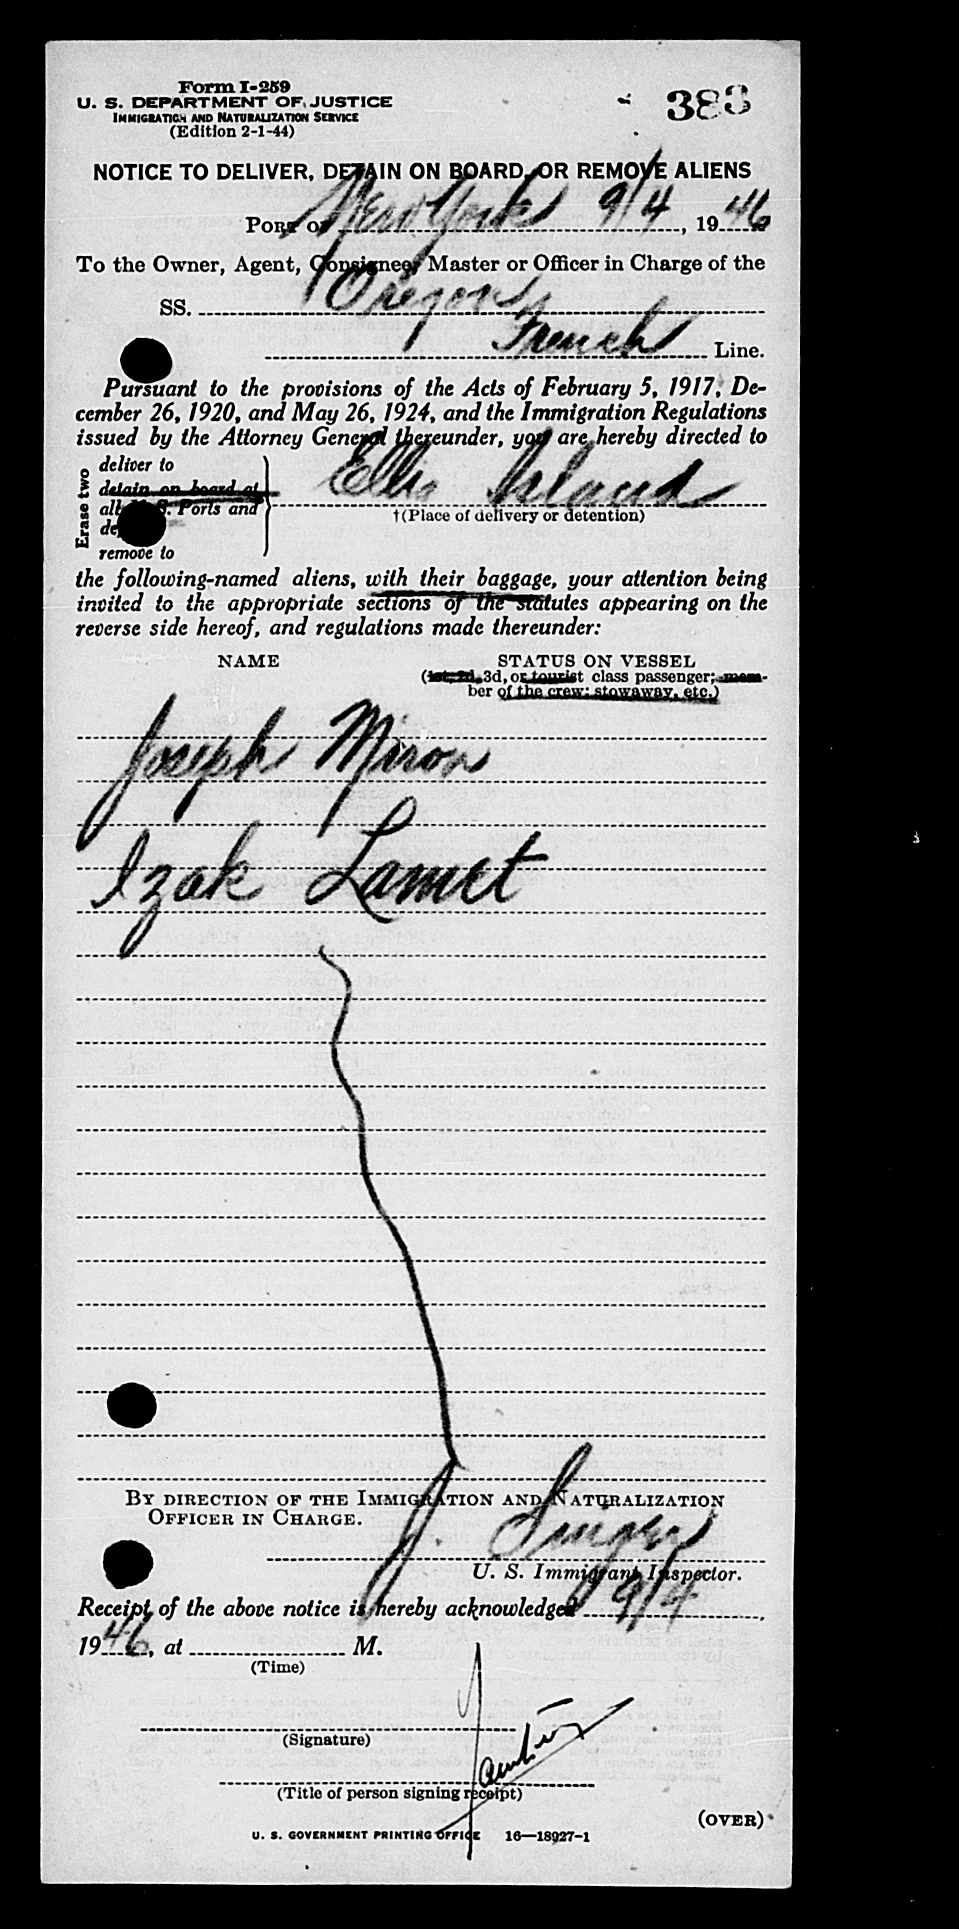 Form I-259
U. S. DEPARTMENT OF JUSTICE
IMMIGRATION AND NATURALIZATION SERVICE
(Edition 2-1-44)
383
NOTICE TO DELIVER, DETAIN ON BOARD, OR REMOVE ALIENS
PORT of New York 9/4, 1946
To the Owner, Agent, Consignee, Master or Officer in Charge of the
SS. Oregon
French Line.
Pursuant to the provisions of the Acts of February 5, 1917, De-
cember 26, 1920, and May 26, 1924, and the Immigration Regulations
issued by the Attorney General thereunder, you are hereby directed to
Erase two
deliver to
detain on board at
all U. S. Ports and
remove to
Ellis Island
†(Place of delivery or detention)
the following-named aliens, with their baggage, your attention being
invited to the appropriate sections of the statutes appearing on the
reverse side hereof, and regulations made thereunder:
NAME STATUS ON VESSEL
(1st, 2d, 3d, or tourist class passenger; mem-
ber of the crew; stowaway, etc.)
Joseph Miron
Izak Lamet
BY DIRECTION OF THE IMMIGRATION AND NATURALIZATION
OFFICER IN CHARGE.
J. Singer
U. S. Immigrant Inspector.
Receipt of the above notice is hereby acknowledged 9/4,
1946, at M.
(Time)
(Signature)
(Title of person signing receipt)
(OVER)
U. S. GOVERNMENT PRINTING OFFICE 16—18927-1